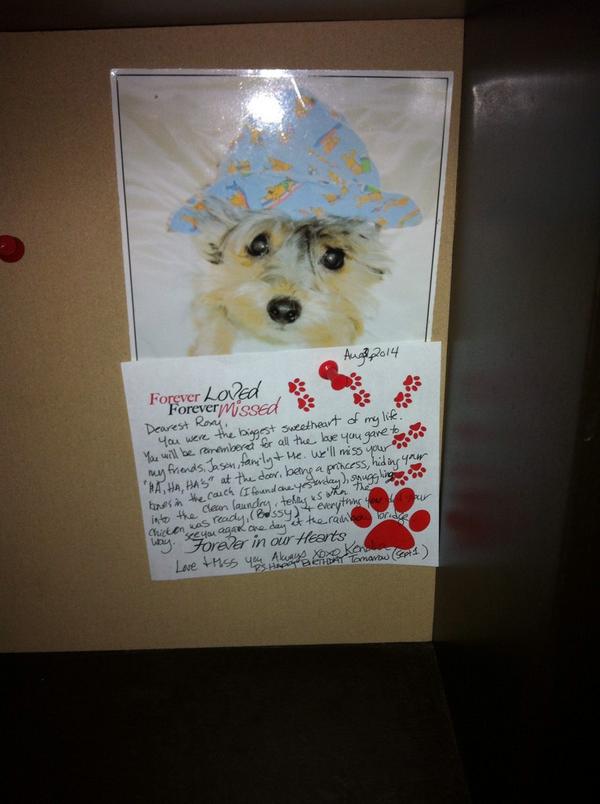 Aug 31, 2014
Forever Loved
Forever Missed
Dearest Roxy,
You were the biggest sweetheart of my life.
You will be remembered for all the love you gave to
my friends, Jason, family + Me. We'll miss your
"HA, HA, HA'S" at the door, being a princess, hiding your
bones in the couch (I found one yesterday), snuggling
into the clean laundry, telling us when the
chicken was ready, (Bossy) + everything you did your
way. See you again one day at the rainbow bridge
Forever in our Hearts
Love + Miss you Always XOXO
PS. Happy BIRTHDAY Tomorrow (Sept 1)